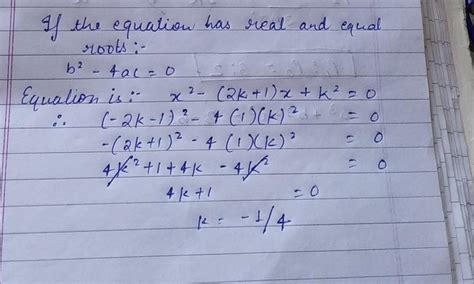 If the equation has real and equal
roots :-
b² - 4ac = 0
Equation is :- x² - (2k+1)x + k² = 0
∴ (-2k-1)² - 4(1)(k)² = 0
-(2k+1)² - 4(1)(k)² = 0
4k² + 1 + 4k - 4k² = 0
4k+1 = 0
k = -1/4